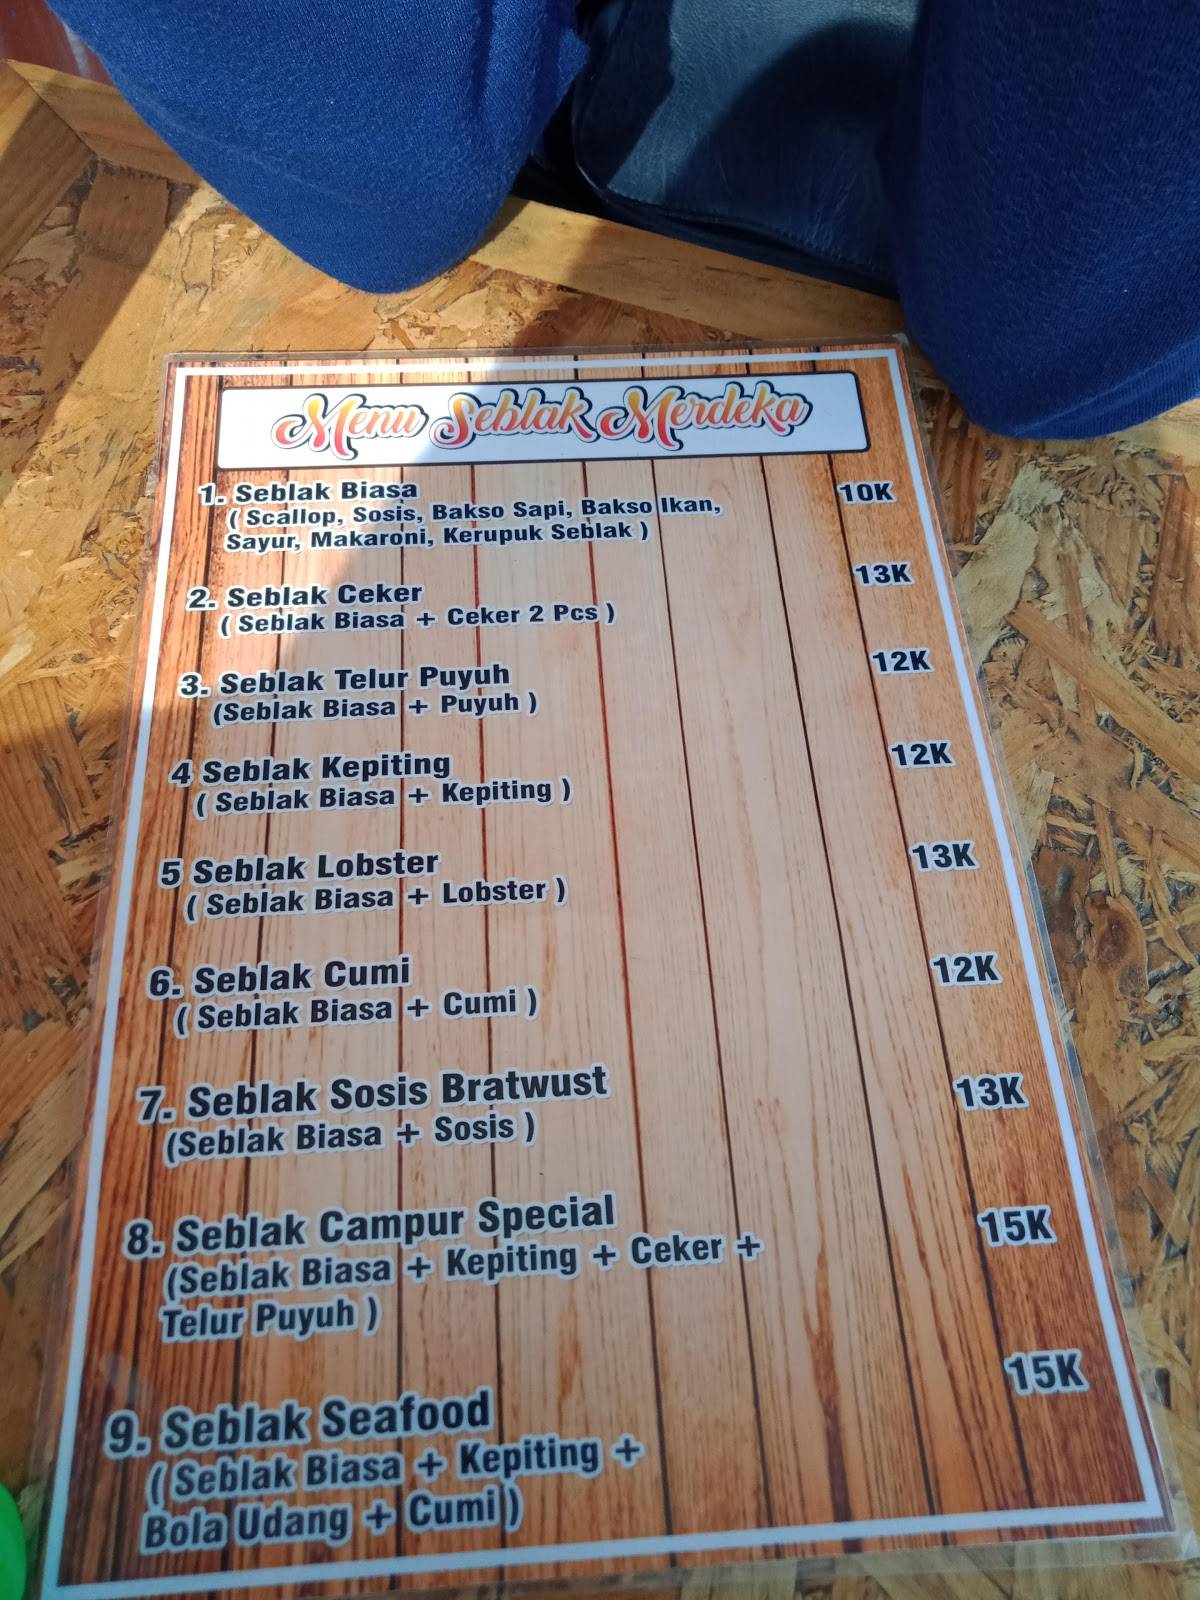 Menu Seblak Merdeka
1. Seblak Biasa 10K
( Scallop, Sosis, Bakso Sapi, Bakso Ikan,
Sayur, Makaroni, Kerupuk Seblak )
2. Seblak Ceker 13K
( Seblak Biasa + Ceker 2 Pcs )
3. Seblak Telur Puyuh 12K
(Seblak Biasa + Puyuh )
4 Seblak Kepiting 12K
( Seblak Biasa + Kepiting )
5 Seblak Lobster 13K
( Seblak Biasa + Lobster )
6. Seblak Cumi 12K
( Seblak Biasa + Cumi )
7. Seblak Sosis Bratwust 13K
(Seblak Biasa + Sosis )
8. Seblak Campur Special 15K
(Seblak Biasa + Kepiting + Ceker +
Telur Puyuh )
9. Seblak Seafood 15K
( Seblak Biasa + Kepiting +
Bola Udang + Cumi )